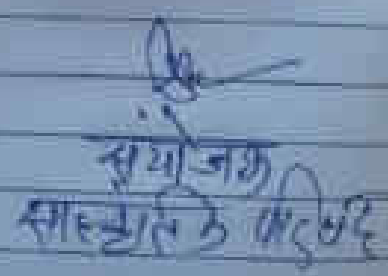 संयोजक
सांस्कृतिक परिषद